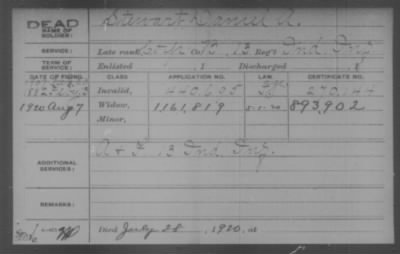 DEAD
NAME OF SOLDIER: Stewart Daniel A.
SERVICE: Late rank, Co. B, 13 Reg't Ind. Inf.
TERM OF SERVICE: Enlisted , 1 Discharged , 1
DATE OF FILING. CLASS. APPLICATION NO. LAW. CERTIFICATE NO.
1882 Invalid, 440,605 270,144
1920 Aug 7 Widow, 1,161,819 5-1-20 893,902
Minor,
ADDITIONAL SERVICES: 13 Ind. Inf.
REMARKS:
Died July 28, 1920, at